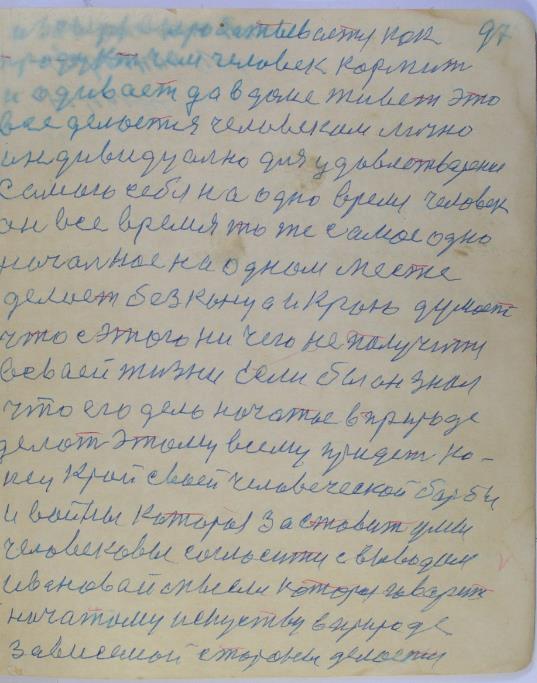 вырабатывается как 97
продукт чем человек кормит
и одивает да в доме живет это
все делоется человеком лично
индивидуално для удовлетварени
самого себя на одно время человек
он все время то же самое одно
началное на одном месте
делоет без конца и краю думоет
что с этого ни чего не получити
всваей жизни если бы он знал
что его дело начатое в природе
делот этому всему придет ко-
нец край своей человеческой барбы
и войны которая заставит умы
человековы согласити с выводам
ивановай мысли котора гаварит
начатому искуству в природе
зависемой стороны делоети